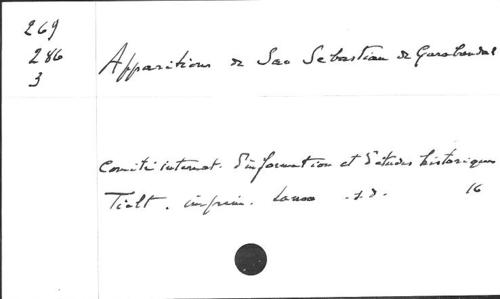 269
286
3
Apparitions de Sao Sebastian de Garabandal
Comité internat. d'information et d'études historiques
Tielt. imprim. Lanoo .s.d. 16